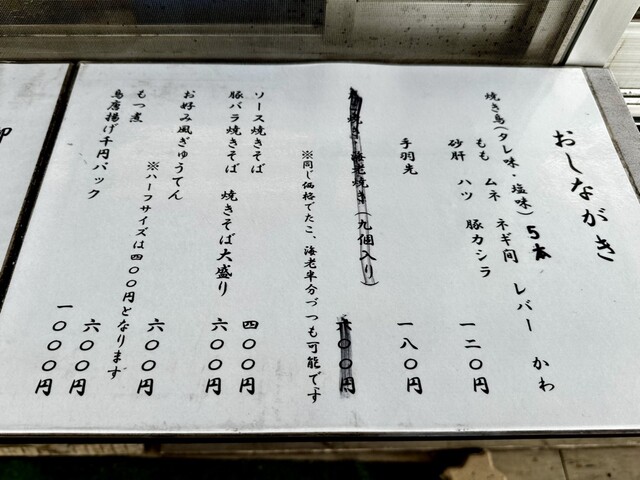 おしながき
焼き鳥(タレ味・塩味)5本
もも ムネ ネギ間 レバー かわ
砂肝 ハツ 豚カシラ 一二〇円
手羽先 一八〇円
焼き・海老焼き(九個入り) 六〇〇円
※同じ価格でたこ、海老半分づつも可能です
ソース焼きそば 四〇〇円
豚バラ焼きそば 焼きそば大盛り 六〇〇円
お好み風ぎゅうてん 六〇〇円
※ハーフサイズは四〇〇円となります
もつ煮 六〇〇円
鳥唐揚げ千円パック 一〇〇〇円